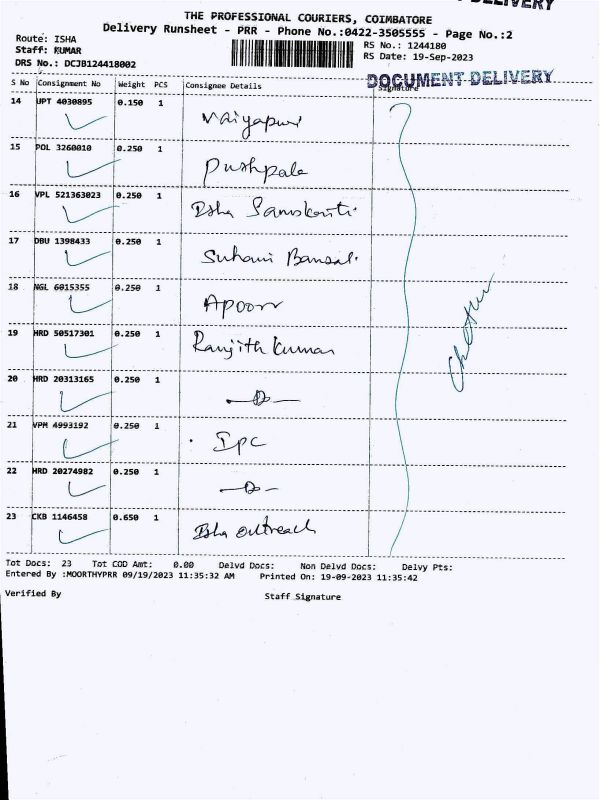 DELIVERY
THE PROFESSIONAL COURIERS, COIMBATORE
Delivery Runsheet - PRR - Phone No.:0422-3505555 - Page No.:2
Route: ISHA
RS No.: 1244180
Staff: KUMAR
RS Date: 19-Sep-2023
DRS No.: DCJB124418002
DOCUMENT DELIVERY
S No Consignment No Weight PCS Consignee Details Signature
14 UPT 4030895 0.150 1 Vaiyapuri
15 POL 3260010 0.250 1 Pushpala
16 VPL 521363023 0.250 1 Isha Samskriti
17 DBU 1398433 0.250 1 Suhani Bansal
18 NGL 6015355 0.250 1 Apoorv
19 HRD 50517301 0.250 1 Ranjith Kumar
20 HRD 20313165 0.250 1 —Do—
21 VPM 4993192 0.250 1 IPC
22 HRD 20274982 0.250 1 —Do—
23 CKB 1146458 0.650 1 Isha outreach
Tot Docs: 23 Tot COD Amt: 0.00 Delvd Docs: Non Delvd Docs: Delvy Pts:
Entered By :MOORTHYPRR 09/19/2023 11:35:32 AM Printed On: 19-09-2023 11:35:42
Verified By Staff Signature